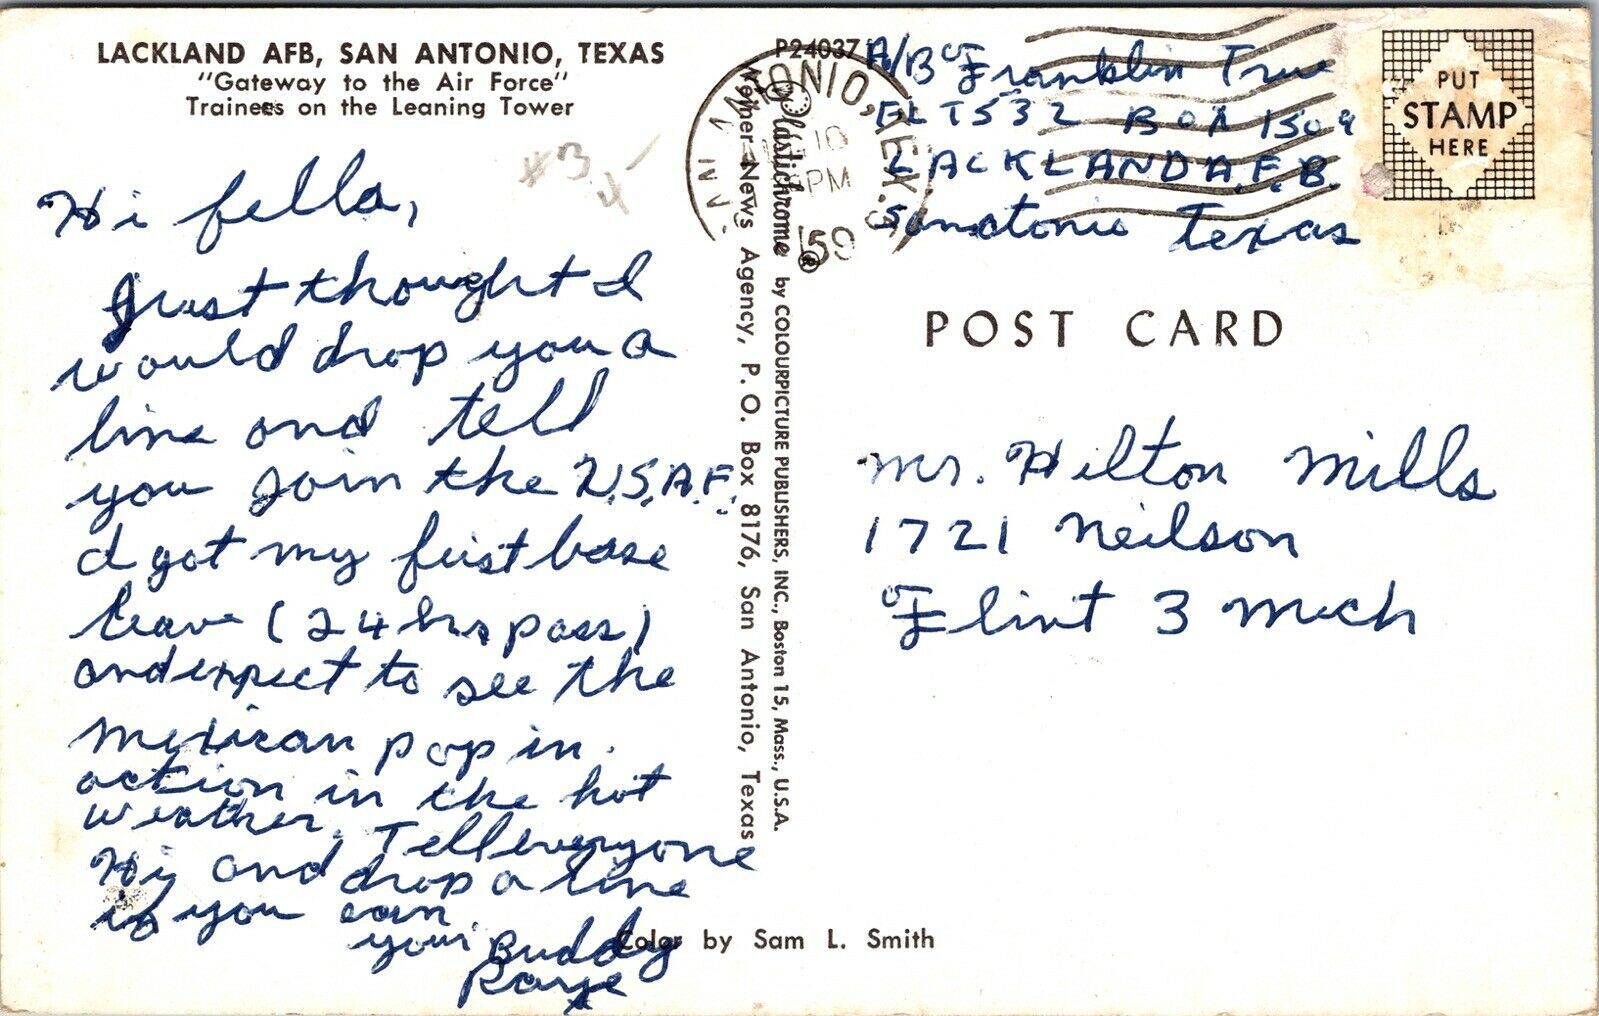 LACKLAND AFB, SAN ANTONIO, TEXAS
"Gateway to the Air Force"
Trainees on the Leaning Tower
Hi fella,
Just thought I
would drop you a
line and tell
you join the U.S.A.F.
I got my first base
leave (24 hrs pass)
and expect to see the
mexican pop in
action in the hot
weather. Tell everyone
Hi and drop a line
if you can.
your Buddy
Color by Sam L. Smith
P24037
Plastichrome® by COLOURPICTURE PUBLISHERS, INC., Boston 15, Mass., U.S.A.
News Agency, P. O. Box 8176, San Antonio, Texas
TONIO, TEX.
10
PM
'59
A/B Franklin True
FLT 532 BOX 1509
LACKLAND A.F.B.
Sanatonio Texas
PUT
STAMP
HERE
POST CARD
Mr. Hilton Mills
1721 Neilson
Flint 3 Mich